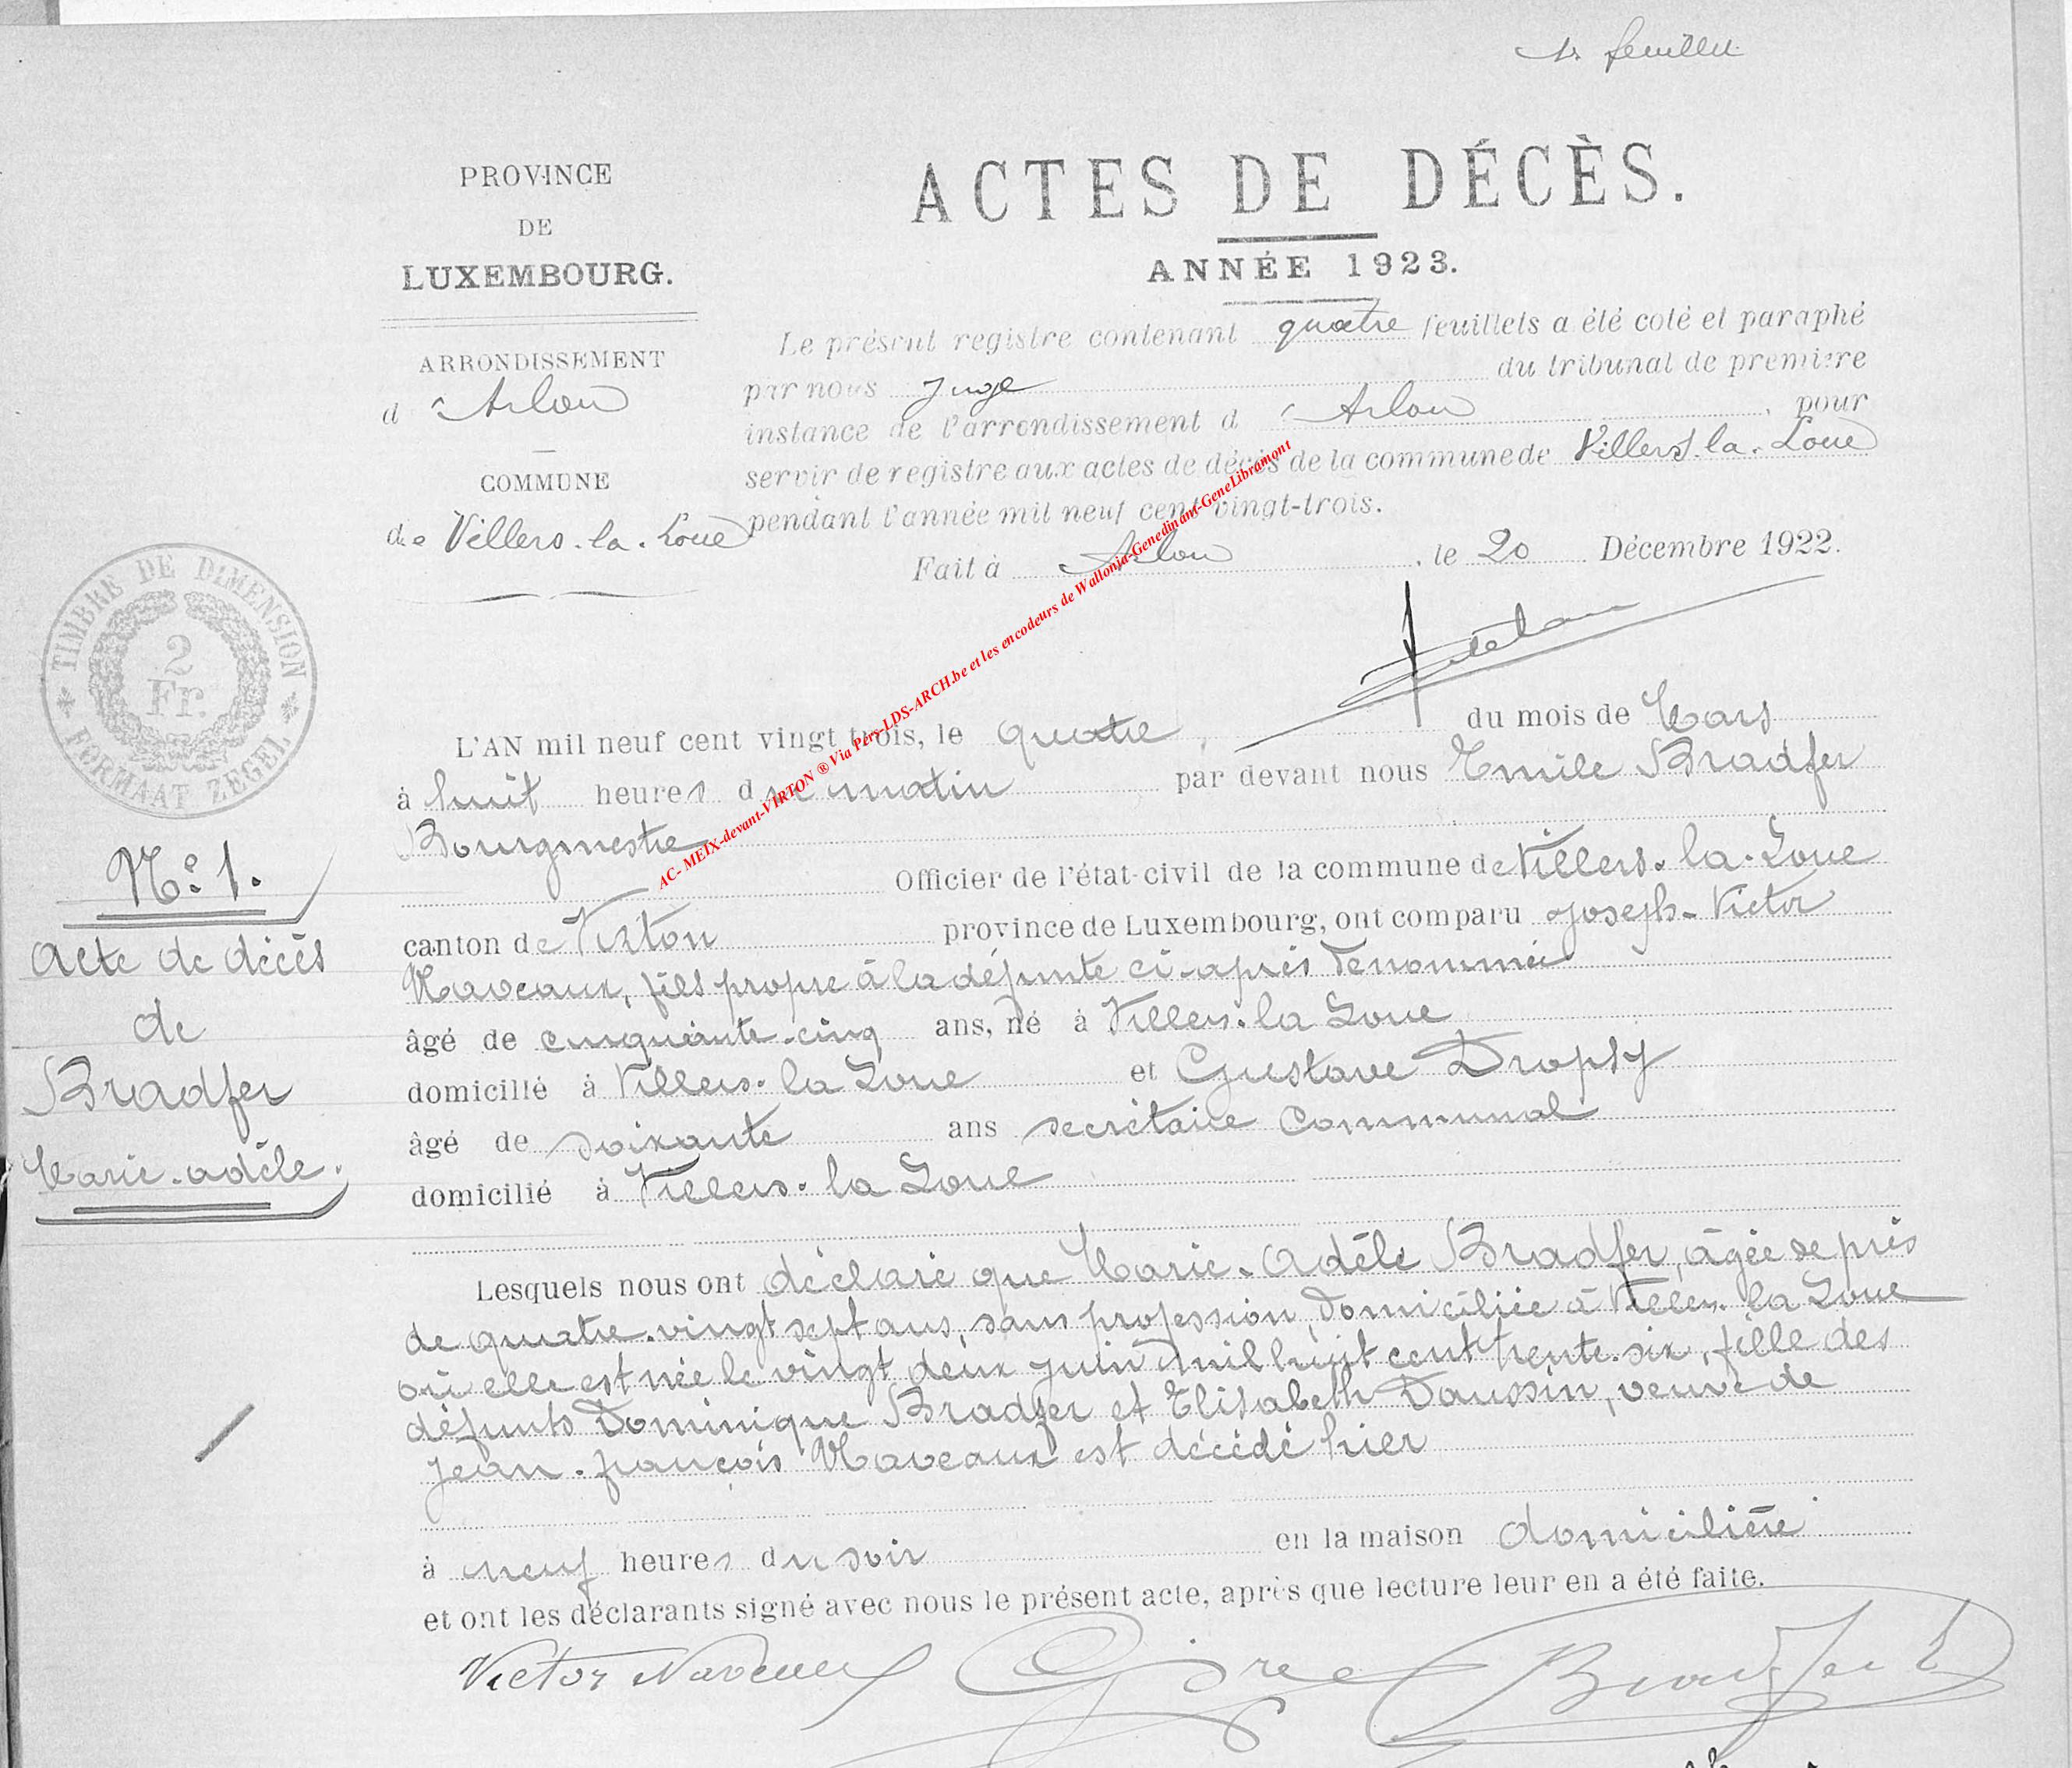 1r feuillet
PROVINCE
DE
LUXEMBOURG.
ARRONDISSEMENT
d'Arlon
COMMUNE
de Villers-la-Loue
ACTES DE DÉCÈS.
ANNÉE 1923.
Le présent registre contenant quatre feuillets a été coté et paraphé
par nous Juge du tribunal de première
instance de l'arrondissement d'Arlon, pour
servir de registre aux actes de décès de la commune de Villers-la-Loue
pendant l'année mil neuf cent vingt-trois.
Fait à Arlon, le 20 Décembre 1922.
TIMBRE DE DIMENSION
2
Fr.
FORMAAT ZEGEL
AC- MEIX-devant-VIRTON ® Via Pers-LDS-ARCH.be et les encodeurs de Wallonia-Genedinant-GeneLibramont
N° 1.
Acte de décès
de
Bradfer
Marie-Adèle.
L'AN mil neuf cent vingt trois, le quatre du mois de Mars
à huit heures du matin par devant nous Emile Bradfer
Bourgmestre
Officier de l'état-civil de la commune de Villers-la-Loue
canton de Virton province de Luxembourg, ont comparu Joseph-Victor
Naveaux, fils propre à la défunte ci-après dénommée
âgé de cinquante-cinq ans, né à Villers-la Loue
domicilié à Villers-la Loue et Gustave Dropsy
âgé de soixante ans secrétaire communal
domicilié à Villers-la Loue
Lesquels nous ont déclaré que Marie-Adèle Bradfer, âgée de près
de quatre-vingt sept ans, sans profession, domiciliée à Villers-la Loue
où elle est née le vingt deux juin mil huit cent trente-six, fille des
défunts Dominique Bradfer et Elisabeth Daussin, veuve de
Jean-françois Naveaux est décédé hier
à neuf heures du soir en la maison domicilière
et ont les déclarants signé avec nous le présent acte, après que lecture leur en a été faite.
Victor Naveaux Bradfer E